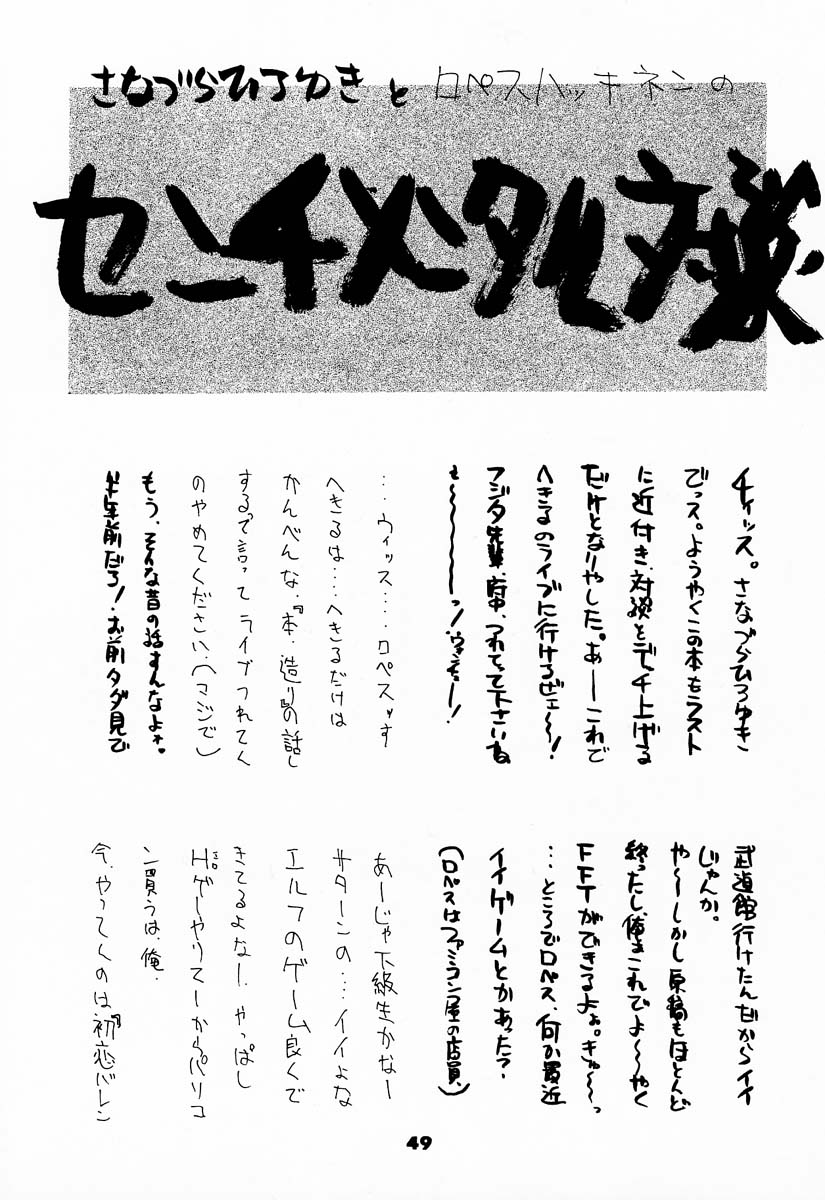 さなづらひろゆきとロペスハッキネンの
センチメンタル対談
チィッス。さなづらひろゆき
でっス。ようやくこの本もラスト
に近付き、対談とデッチ上げる
だけとなりやした。あーこれで
へきるのライブに行けるぜェ〜〜!
フジタ先輩、府中、つれてって下さいね
…ウィッス…。ロペスッす
へきるは…へきるだけは
かんべんな、『本、造り』の話し
するで言ってライブつれてく
のやめてください、(マジで)
もう、そんな昔の話すんなよォ。
半年前だろ!お前タダ見で
武道館行けたんだからイイ
じゃんか。
や〜〜しかし原稿もほとんど
終ったし、俺もこれでよ〜〜やく
FFTができるよぉ。きゅ〜〜っ
…ところでロペス、何か最近
イイゲームとかあった?
(ロペスはファミコン屋の店員)
あーじゃ下級生かなー
サターンの…イイよな
エルフのゲーム良くで
きてるよなー、やっぱし
Hゲーやりてーからパソコ
ン買うは、俺、
今、やってくのは『初恋バレン
49